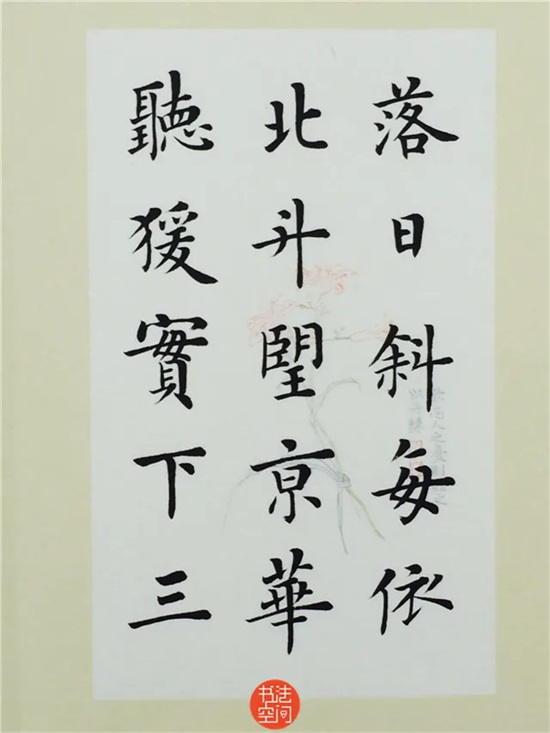 落日斜每依
北斗望京華
聽猨實下三
书法
空间